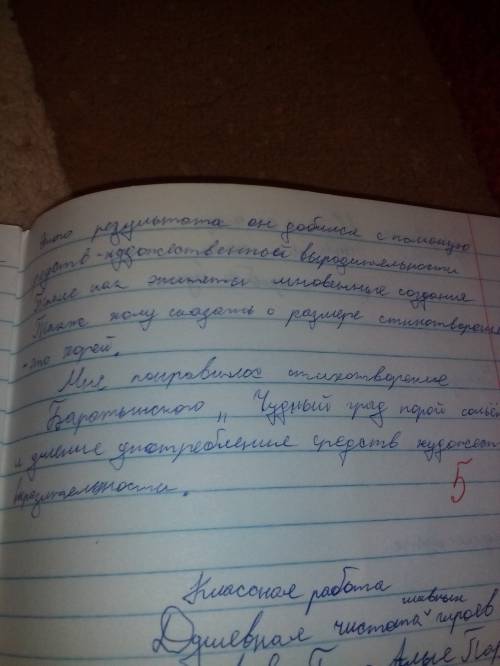 этого результата он добился с помощую
средств художественной выразительности
Такие как эпитеты мгновенные создания
Также хочу сказать о размере стихотворения
- это хорей.
Мне понравилось стихотворение
Баратынского „ Чудный град порой сольё
и умение употребления средств художест
выразительности.
5
Классная работа
Душевная чистота главных героев
Алые Пар